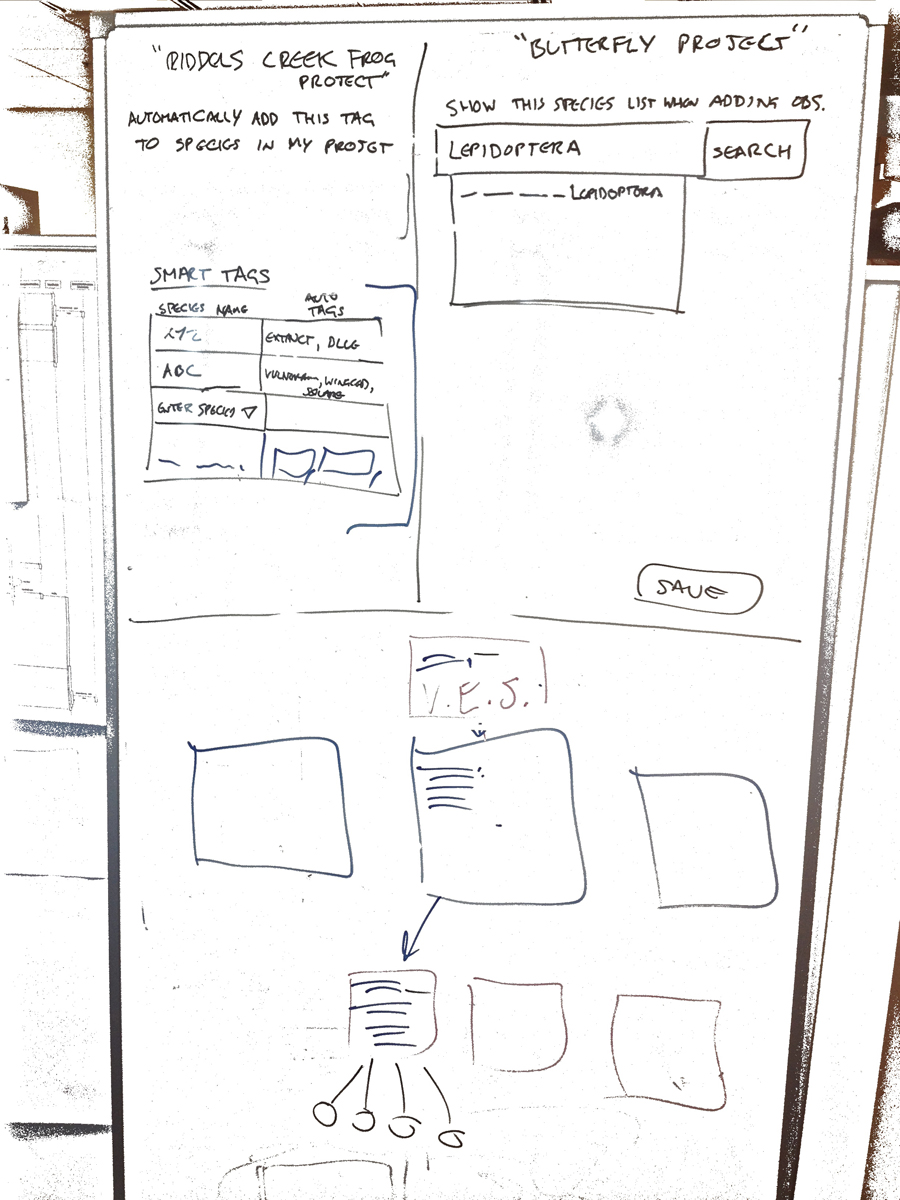 "RIDDOLS CREEK FROG
PROJECT"
AUTOMATICALLY ADD THIS TAG
TO SPECIES IN MY PROJECT
SMART TAGS
SPECIES NAME
AUTO
TAGS
XYZ
EXTINCT,
ABC
WINGED,
ENTER SPECIES
"BUTTERFLY PROJECT"
SHOW THIS SPECIES LIST WHEN ADDING OBS.
LEPIDOPTERA
SEARCH
LEPIDOPTORA
SAVE
V.E.S.